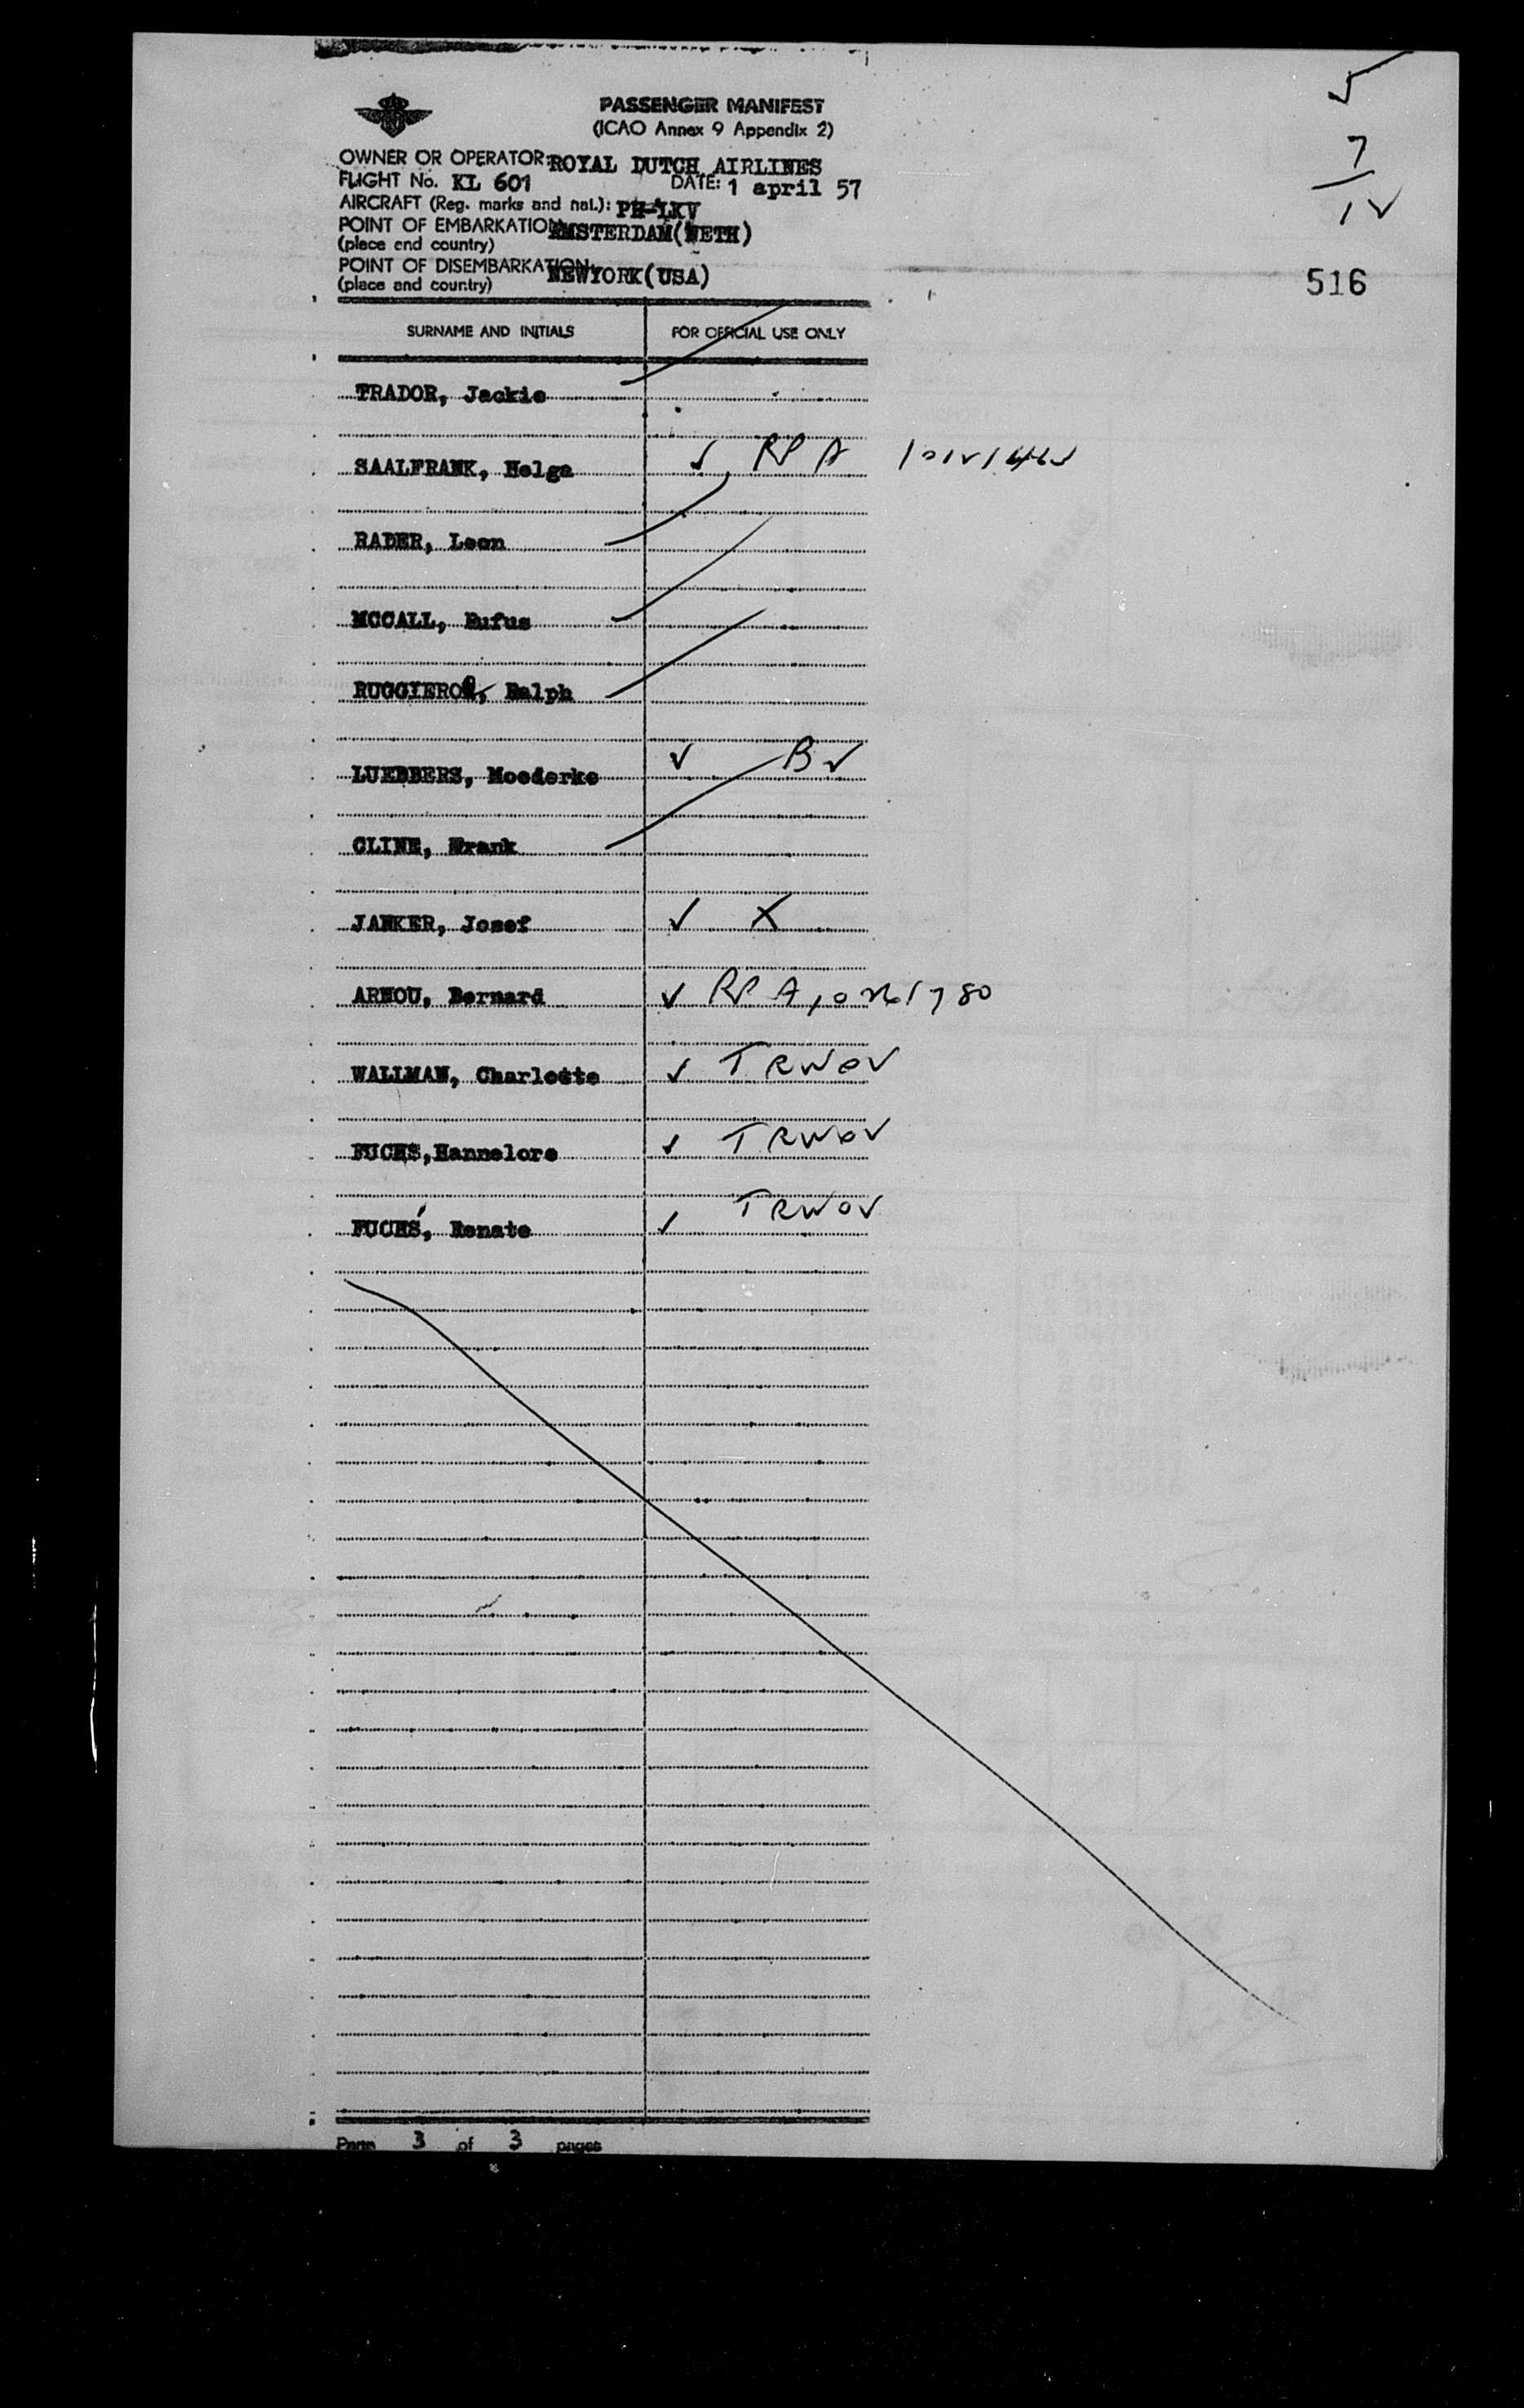 5
7
12
516
PASSENGER MANIFEST
(ICAO Annex 9 Appendix 2)
OWNER OR OPERATOR: ROYAL DUTCH AIRLINES
FLIGHT No. KL 601 DATE: 1 april 57
AIRCRAFT (Reg. marks and nat.): PH-LKV
POINT OF EMBARKATION AMSTERDAM(NETH)
(place and country)
POINT OF DISEMBARKATION: NEWYORK(USA)
(place and country)
SURNAME AND INITIALS FOR OFFICIAL USE ONLY
TRADOR, Jackie
SAALFRANK, Helga ✓ RPA
RADER, Leon
MCCALL, Rufus
RUGGIERO, Ralph
LUEBBERS, Moederke ✓ B ✓
CLINE, Frank
JANKER, Josef ✓ X
ARNOU, Bernard ✓ RPA
WALLMAN, Charlotte ✓ TRWOV
FUCHS, Hannelore ✓ TRWOV
FUCHS, Renate ✓ TRWOV
Page 3 of 3 pages